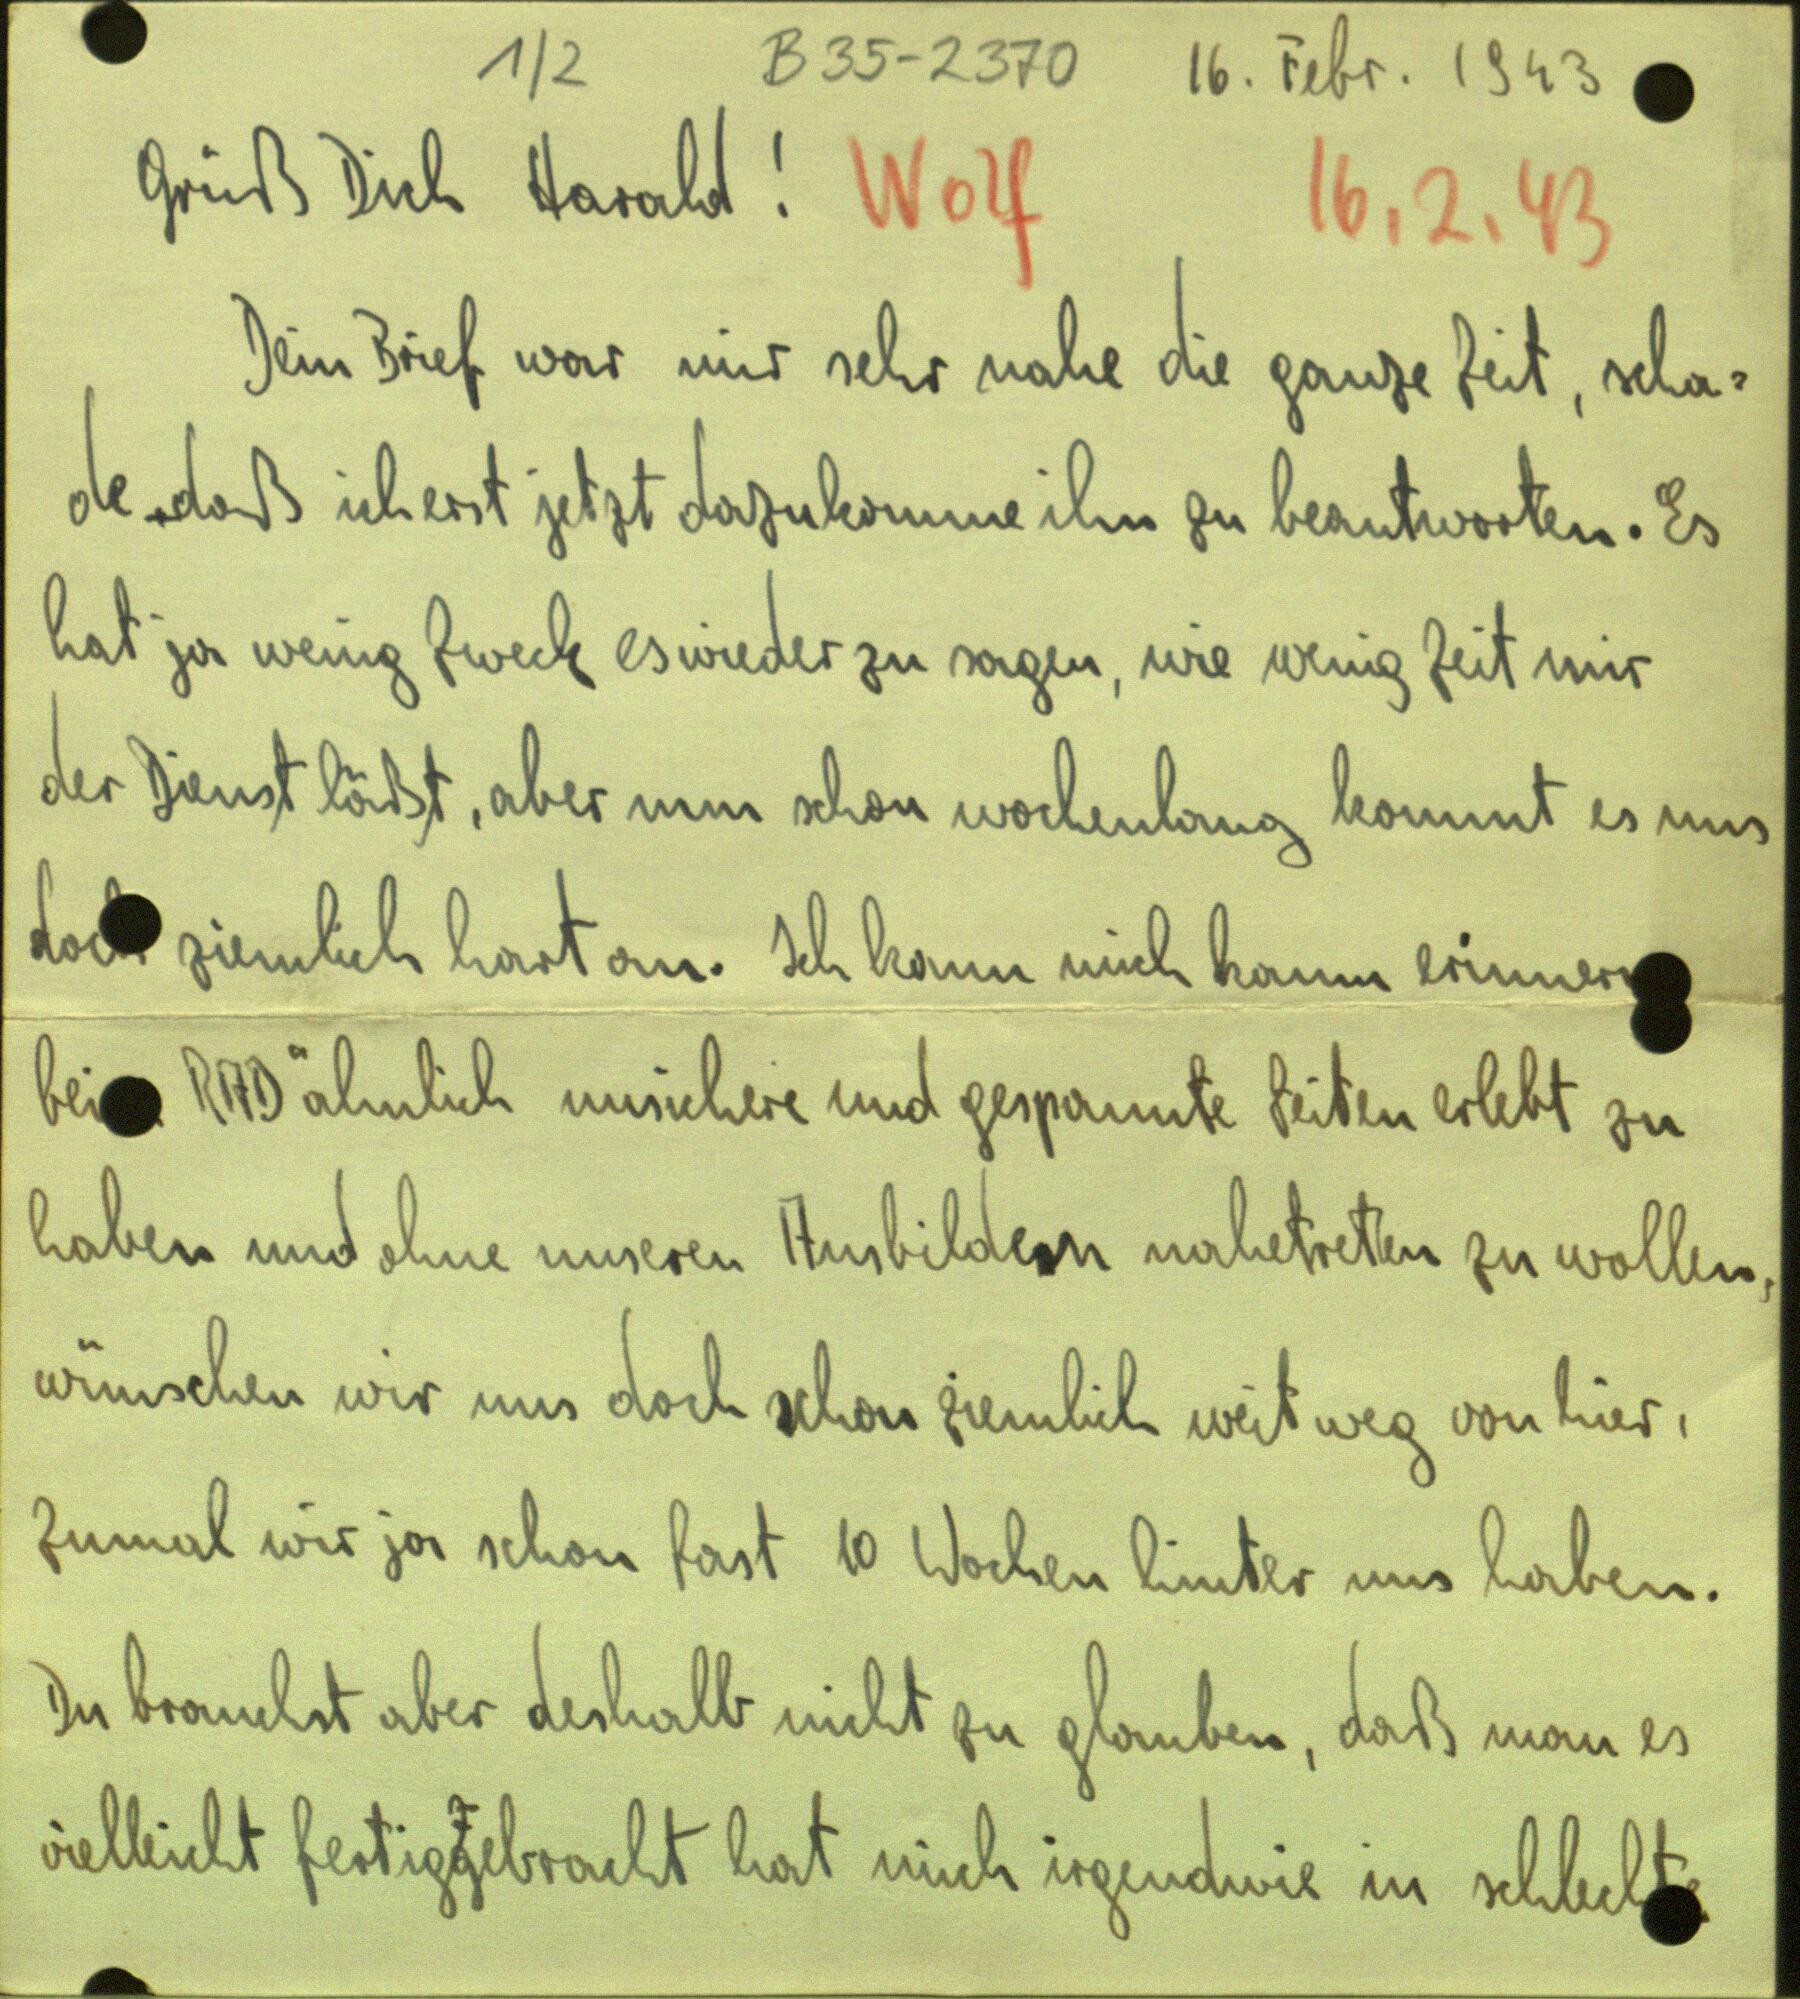 1/2 B35-2370 16. Febr. 1943
Grüß Dich Harald! Wolf 16.2.43
Dein Brief war mir sehr nahe die ganze Zeit, scha=
de, daß ich erst jetzt dazukomme ihn zu beantworten. Es
hat ja wenig Zweck es wieder zu sagen, wie wenig Zeit mir
der Dienst läßt, aber nun schon wochenlang kommt es uns
doch ziemlich hart an. Ich kann mich kaum erinnern
beim RAD ähnlich unsichere und gespannte Zeiten erlebt zu
haben und ohne unseren Ausbildern nahetreten zu wollen,
wünschen wir uns doch schon ziemlich weit weg von hier,
zumal wir ja schon fast 10 Wochen hinter uns haben.
Du brauchst aber deshalb nicht zu glauben, daß man es
vielleicht fertiggebracht hat mich irgendwie in schlechte